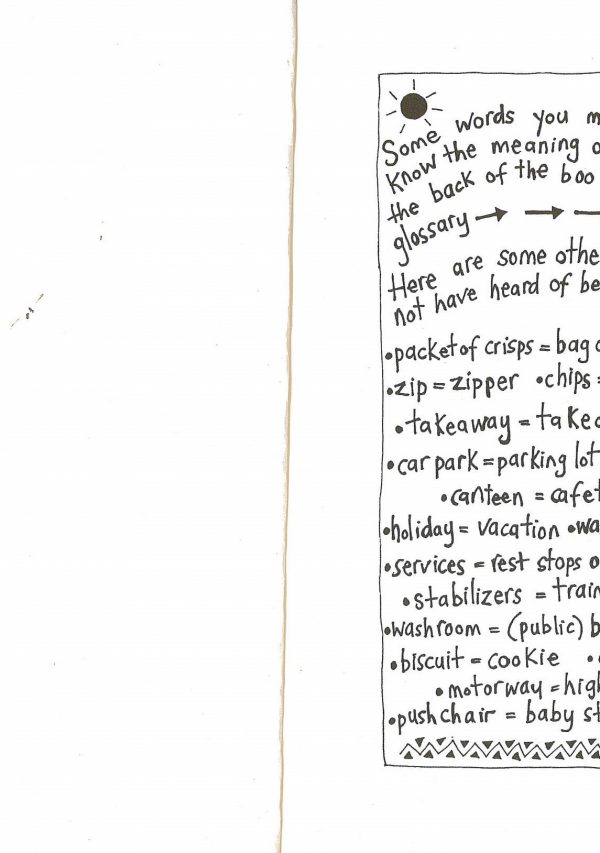 Some words you m
Know the meaning o
the back of the boo
glossary → → —
Here are some othe
not have heard of be
•packet of crisps = bag
•zip = zipper •chips =
•takeaway = takeo
•car park = parking lot
•canteen = cafet
•holiday = vacation •wa
•services = rest stops o
•stabilizers = train
•washroom = (public) b
•biscuit = cookie •
•motorway = high
•pushchair = baby st